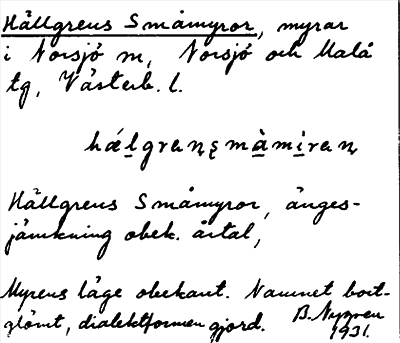 Hällgrens Småmyror, myrar
i Norsjö sn, Norsjö och Malå
tg, Västerb. l.
Hällgrens Småmyror, änges-
jämkning obek. årtal,
Myrens läge obekant. Namnet bort-
glömt, dialektformen gjord. B. Nygren
1931.